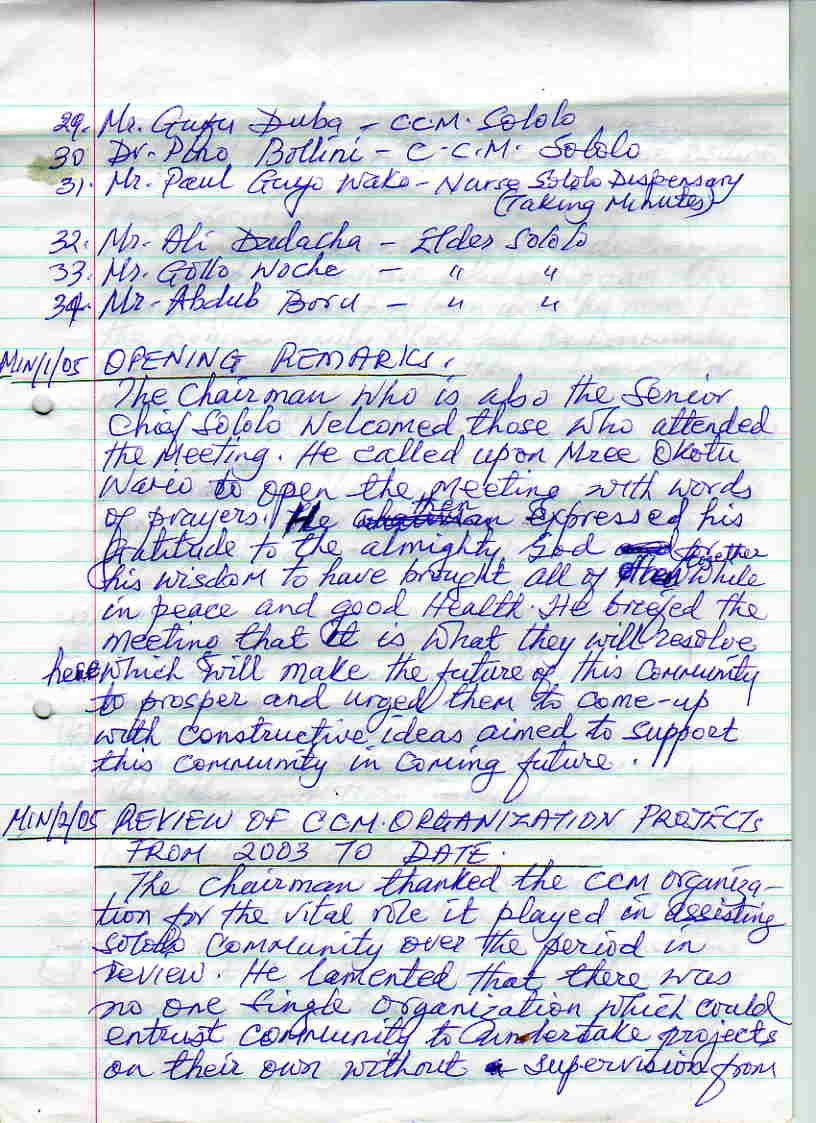 29. Mr. Guyu Duba - C.C.M. Sololo
30 Dr. Pino Bollini - C.C.M. Sololo
31. Mr. Paul Guyo Wako - Nurse Sololo Dispensary
(Taking Minutes)
32. Mr. Ali Dadacha - Elder Sololo
33. Mr. Gollo Woche - " "
34. Mr. Abdub Boru - " "
MIN/1/05 OPENING REMARKS.
The Chairman who is also the Senior
Chief Sololo welcomed those who attended
the Meeting. He called upon Mzee Okotu
Wario to open the meeting with words
of prayers. He then expressed his
gratitude to the almighty God for
his wisdom to have brought all of them together while
in peace and good Health. He briefed the
meeting that it is what they will resolve
here which will make the future of this Community
to prosper and urged them to come-up
with constructive ideas aimed to support
this community in coming future.
MIN/2/05 REVIEW OF CCM. ORGANIZATION PROJECTS
FROM 2003 TO DATE.
The chairman thanked the CCM organiza-
tion for the vital role it played in assisting
Sololo Community over the period in
review. He lamented that there was
no one single organization which could
entrust community to undertake projects
on their own without supervision from